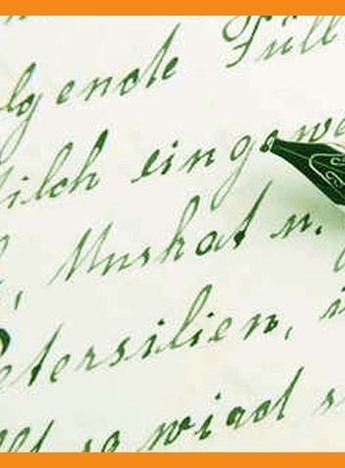 lgende Füll
Milch einge
, Muskat u.
Petersilien,
so wird